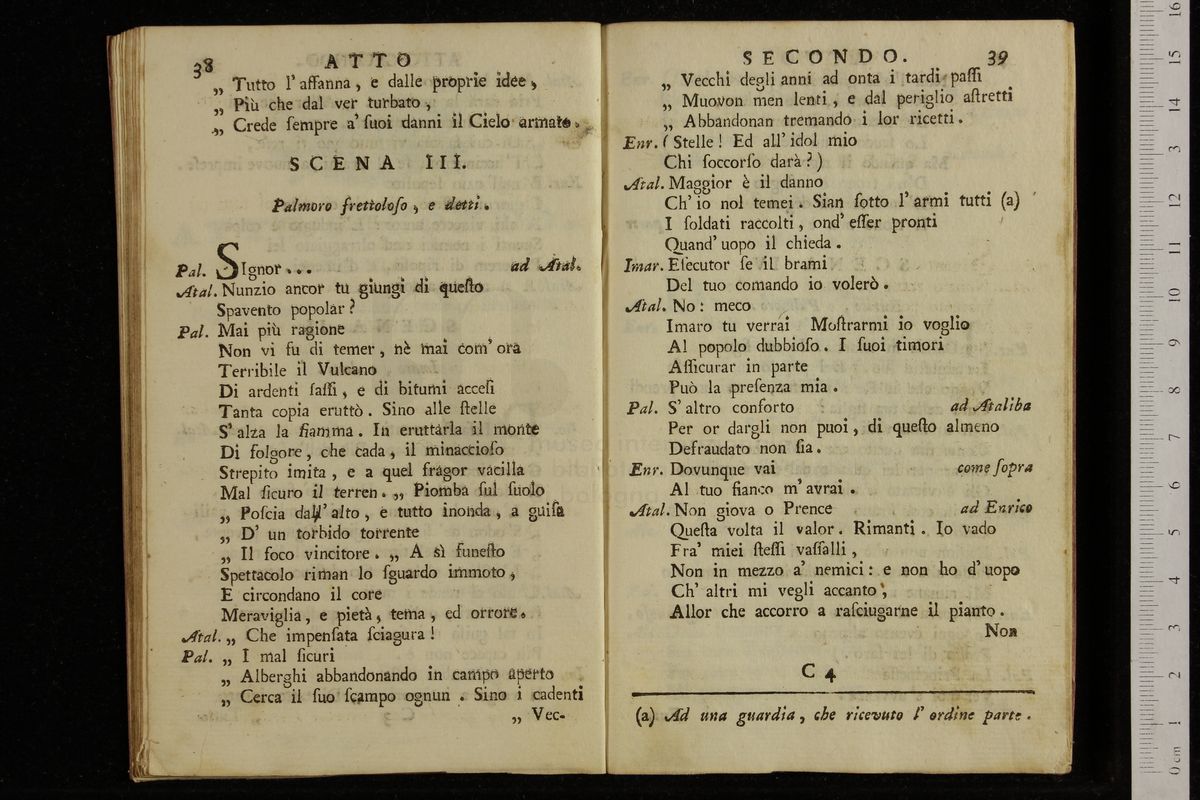 38 ATTO
„ Tutto l' affanna, e dalle proprie idee,
„ Più che dal ver turbato,
„ Crede ſempre a' ſuoi danni il Cielo armato.
SCENA III.
Palmoro frettoloſo, e detti.
Pal. SIgnor... ad Atal.
Atal. Nunzio ancor tu giungi di queſto
Spavento popolar?
Pal. Mai più ragione
Non vi fu di temer, nè mai com' ora
Terribile il Vulcano
Di ardenti ſaſſi, e di bitumi acceſi
Tanta copia eruttò. Sino alle ſtelle
S' alza la fiamma. In eruttarla il monte
Di folgore, che cada, il minaccioſo
Strepito imita, e a quel fragor vacilla
Mal ſicuro il terren. „ Piomba ſul ſuolo
„ Poſcia dall' alto, e tutto inonda, a guiſa
„ D' un torbido torrente
„ Il foco vincitore. „ A sì funeſto
Spettacolo riman lo ſguardo immoto,
E circondano il core
Meraviglia, e pietà, tema, ed orrore.
Atal. „ Che impenſata ſciagura!
Pal. „ I mal ſicuri
„ Alberghi abbandonando in campo aperto
„ Cerca il ſuo ſcampo ognun. Sino i cadenti
„ Vec-
SECONDO. 39
„ Vecchi degli anni ad onta i tardi paſſi
„ Muovon men lenti, e dal periglio aſtretti
„ Abbandonan tremando i lor ricetti.
Enr. (Stelle! Ed all' idol mio
Chi ſoccorſo darà?)
Atal. Maggior è il danno
Ch' io nol temei. Sian ſotto l' armi tutti (a)
I ſoldati raccolti, ond' eſſer pronti
Quand' uopo il chieda.
Imar. Eſecutor ſe il brami
Del tuo comando io volerò.
Atal. No: meco
Imaro tu verrai Moſtrarmi io voglio
Al popolo dubbioſo. I ſuoi timori
Aſſicurar in parte
Può la preſenza mia.
Pal. S' altro conforto ad Ataliba
Per or dargli non puoi, di queſto almeno
Defraudato non ſia.
Enr. Dovunque vai come ſopra
Al tuo fianco m' avrai.
Atal. Non giova o Prence ad Enrico
Queſta volta il valor. Rimanti. Io vado
Fra' miei ſteſſi vaſſalli,
Non in mezzo a' nemici: e non ho d' uopo
Ch' altri mi vegli accanto,
Allor che accorro a raſciugarne il pianto.
Non
C 4
(a) Ad una guardia, che ricevuto l' ordine parte.